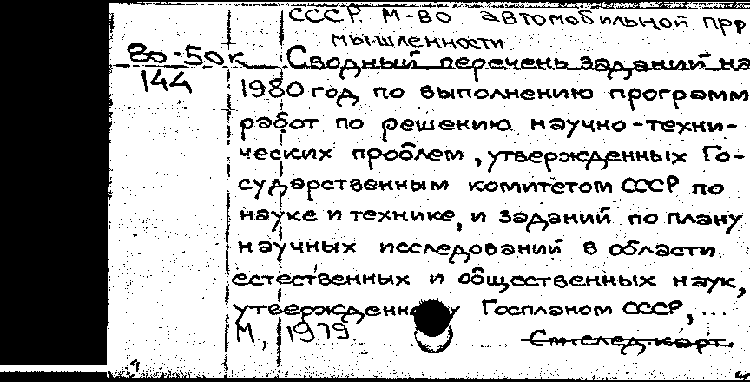 СССР. М-во автомобильной пр
мышленности
80-50к Сводный перечень заданий на
144 1980 год по выполнению программ
работ по решению научно-техни-
ческих проблем, утвержденных Го-
сударственным комитетом СССР по
науке и технике, и заданий по плану
научных исследований в области
естественных и общественных наук,
Госпланом СССР, ...
М, 1979 См.след.карт.